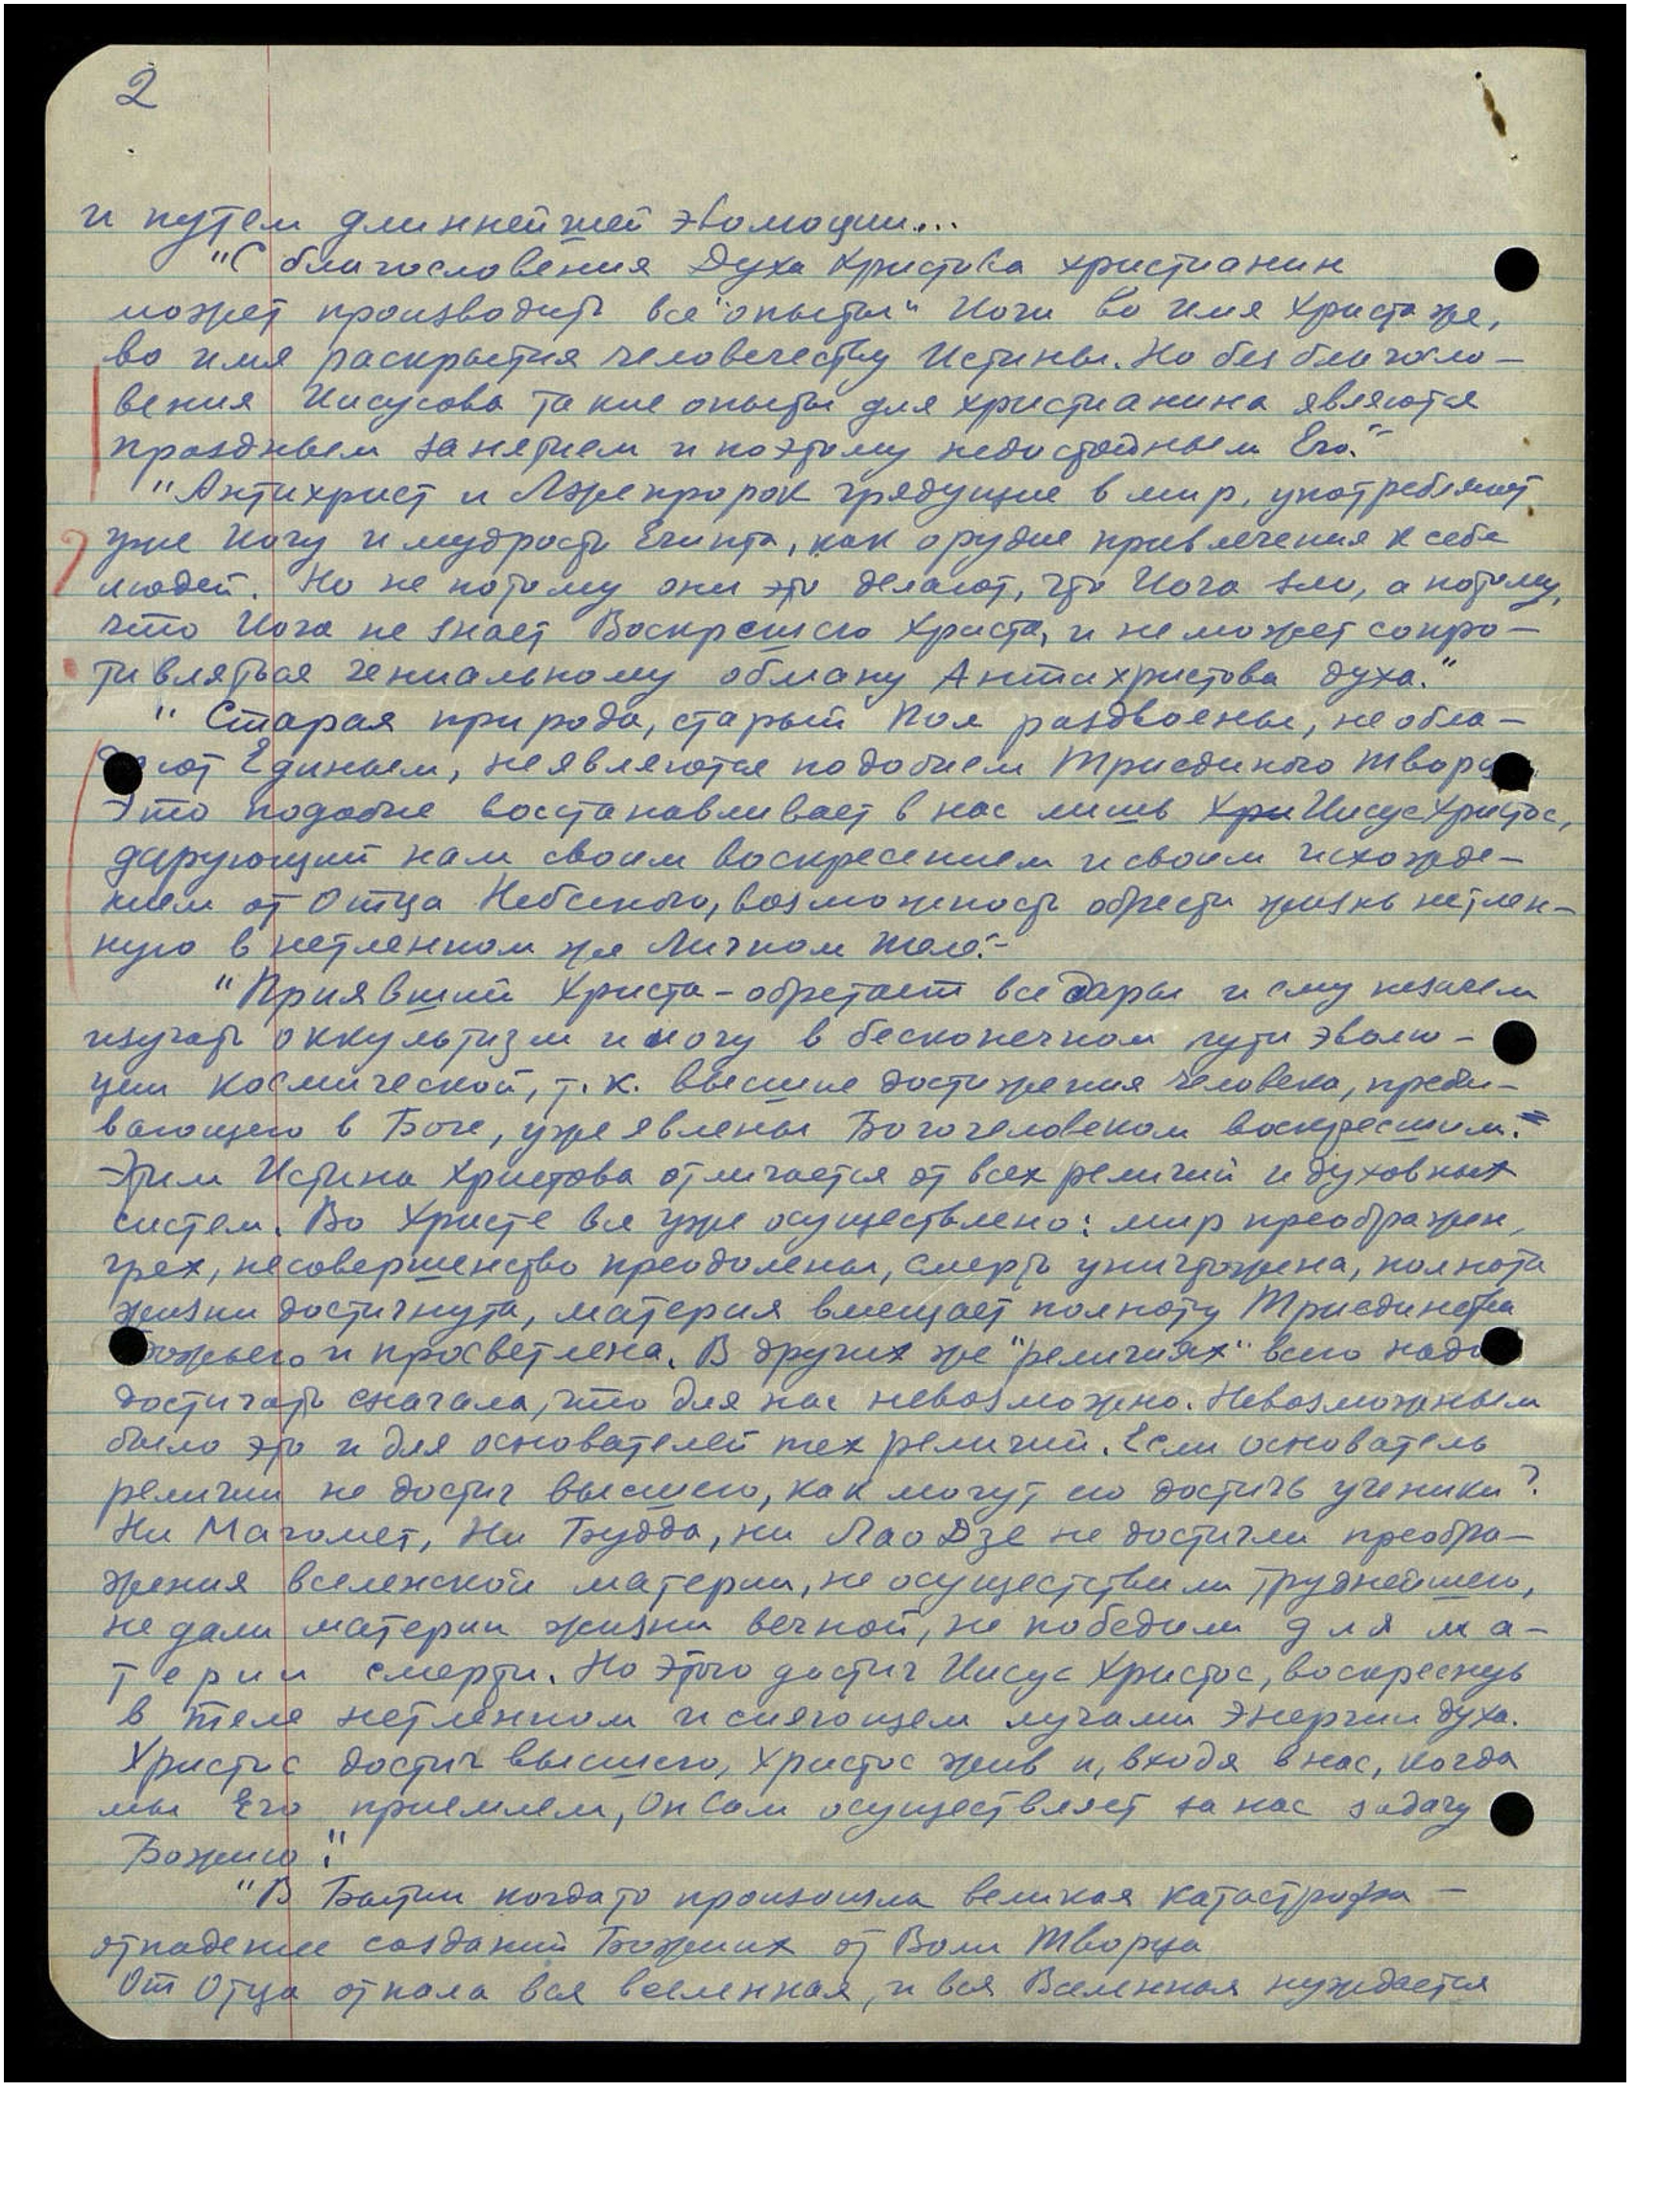 2
и путем длиннейшей эволюции...
"С благословения Духа Христова христианин
может производить все "опыты" Йоги во имя Христа же,
во имя раскрытия человечеству Истины. Но без благосло-
вения Иисусова такие опыты для христианина являются
праздным занятием и поэтому недостойным Его."
"Антихрист и Лжепророк грядущие в мир, употребляют
уже Йогу и мудрость Египта, как орудие привлечения к себе
людей. Но не потому они это делают, что Йога зло, а потому,
что Йога не знает Воскресшего Христа, и не может сопро-
тивляться гениальному обману Антихристова духа."
"Старая природа, старый Пол раздвоены, не обла-
дают Единым, не являются подобием Триединого Творца.
Это подобие восстанавливает в нас лишь Хри Иисус Христос,
дарующий нам своим воскресением и своим исхожде-
нием от Отца Небесного, возможность обрести жизнь нетлен-
ную в нетленном же Личном теле."
"Приявший Христа - обретает все дары и ему незачем
изучать оккультизм и йогу в бесконечном пути эволю-
ции космической, т.к. высшие достижения человека, пребы-
вающего в Боге, уже явлены Богочеловеком воскресшим."
Этим Истина Христова отличается от всех религий и духовных
систем. Во Христе все уже осуществлено: мир преображен,
грех, несовершенство преодолены, смерть уничтожена, полнота
жизни достигнута, материя вмещает полноту Триединства
Божьего и просветлена. В других же "религиях" всего надо
достигать сначала, что для нас невозможно. Невозможным
было это и для основателей тех религий. Если основатель
религии не достиг высшего, как могут его достичь ученики?
Ни Магомет, Ни Будда, ни Лао Дзе не достигли преобра-
жения вселенской материи, не осуществили труднейшего,
не дали материи жизни вечной, не победили для ма-
терии смерти. Но этого достиг Иисус Христос, воскреснув
в теле нетленном и сияющем лучами Энергии духа.
Христос достиг высшего, Христос жив и, входя в нас, когда
мы Его приемлем, Он Сам осуществляет за нас задачу
Божию."
"В Бытии когда то произошла великая катастрофа -
отпадение созданий Божиих от Воли Творца
От Отца отпала вся вселенная, и вся Вселенная нуждается